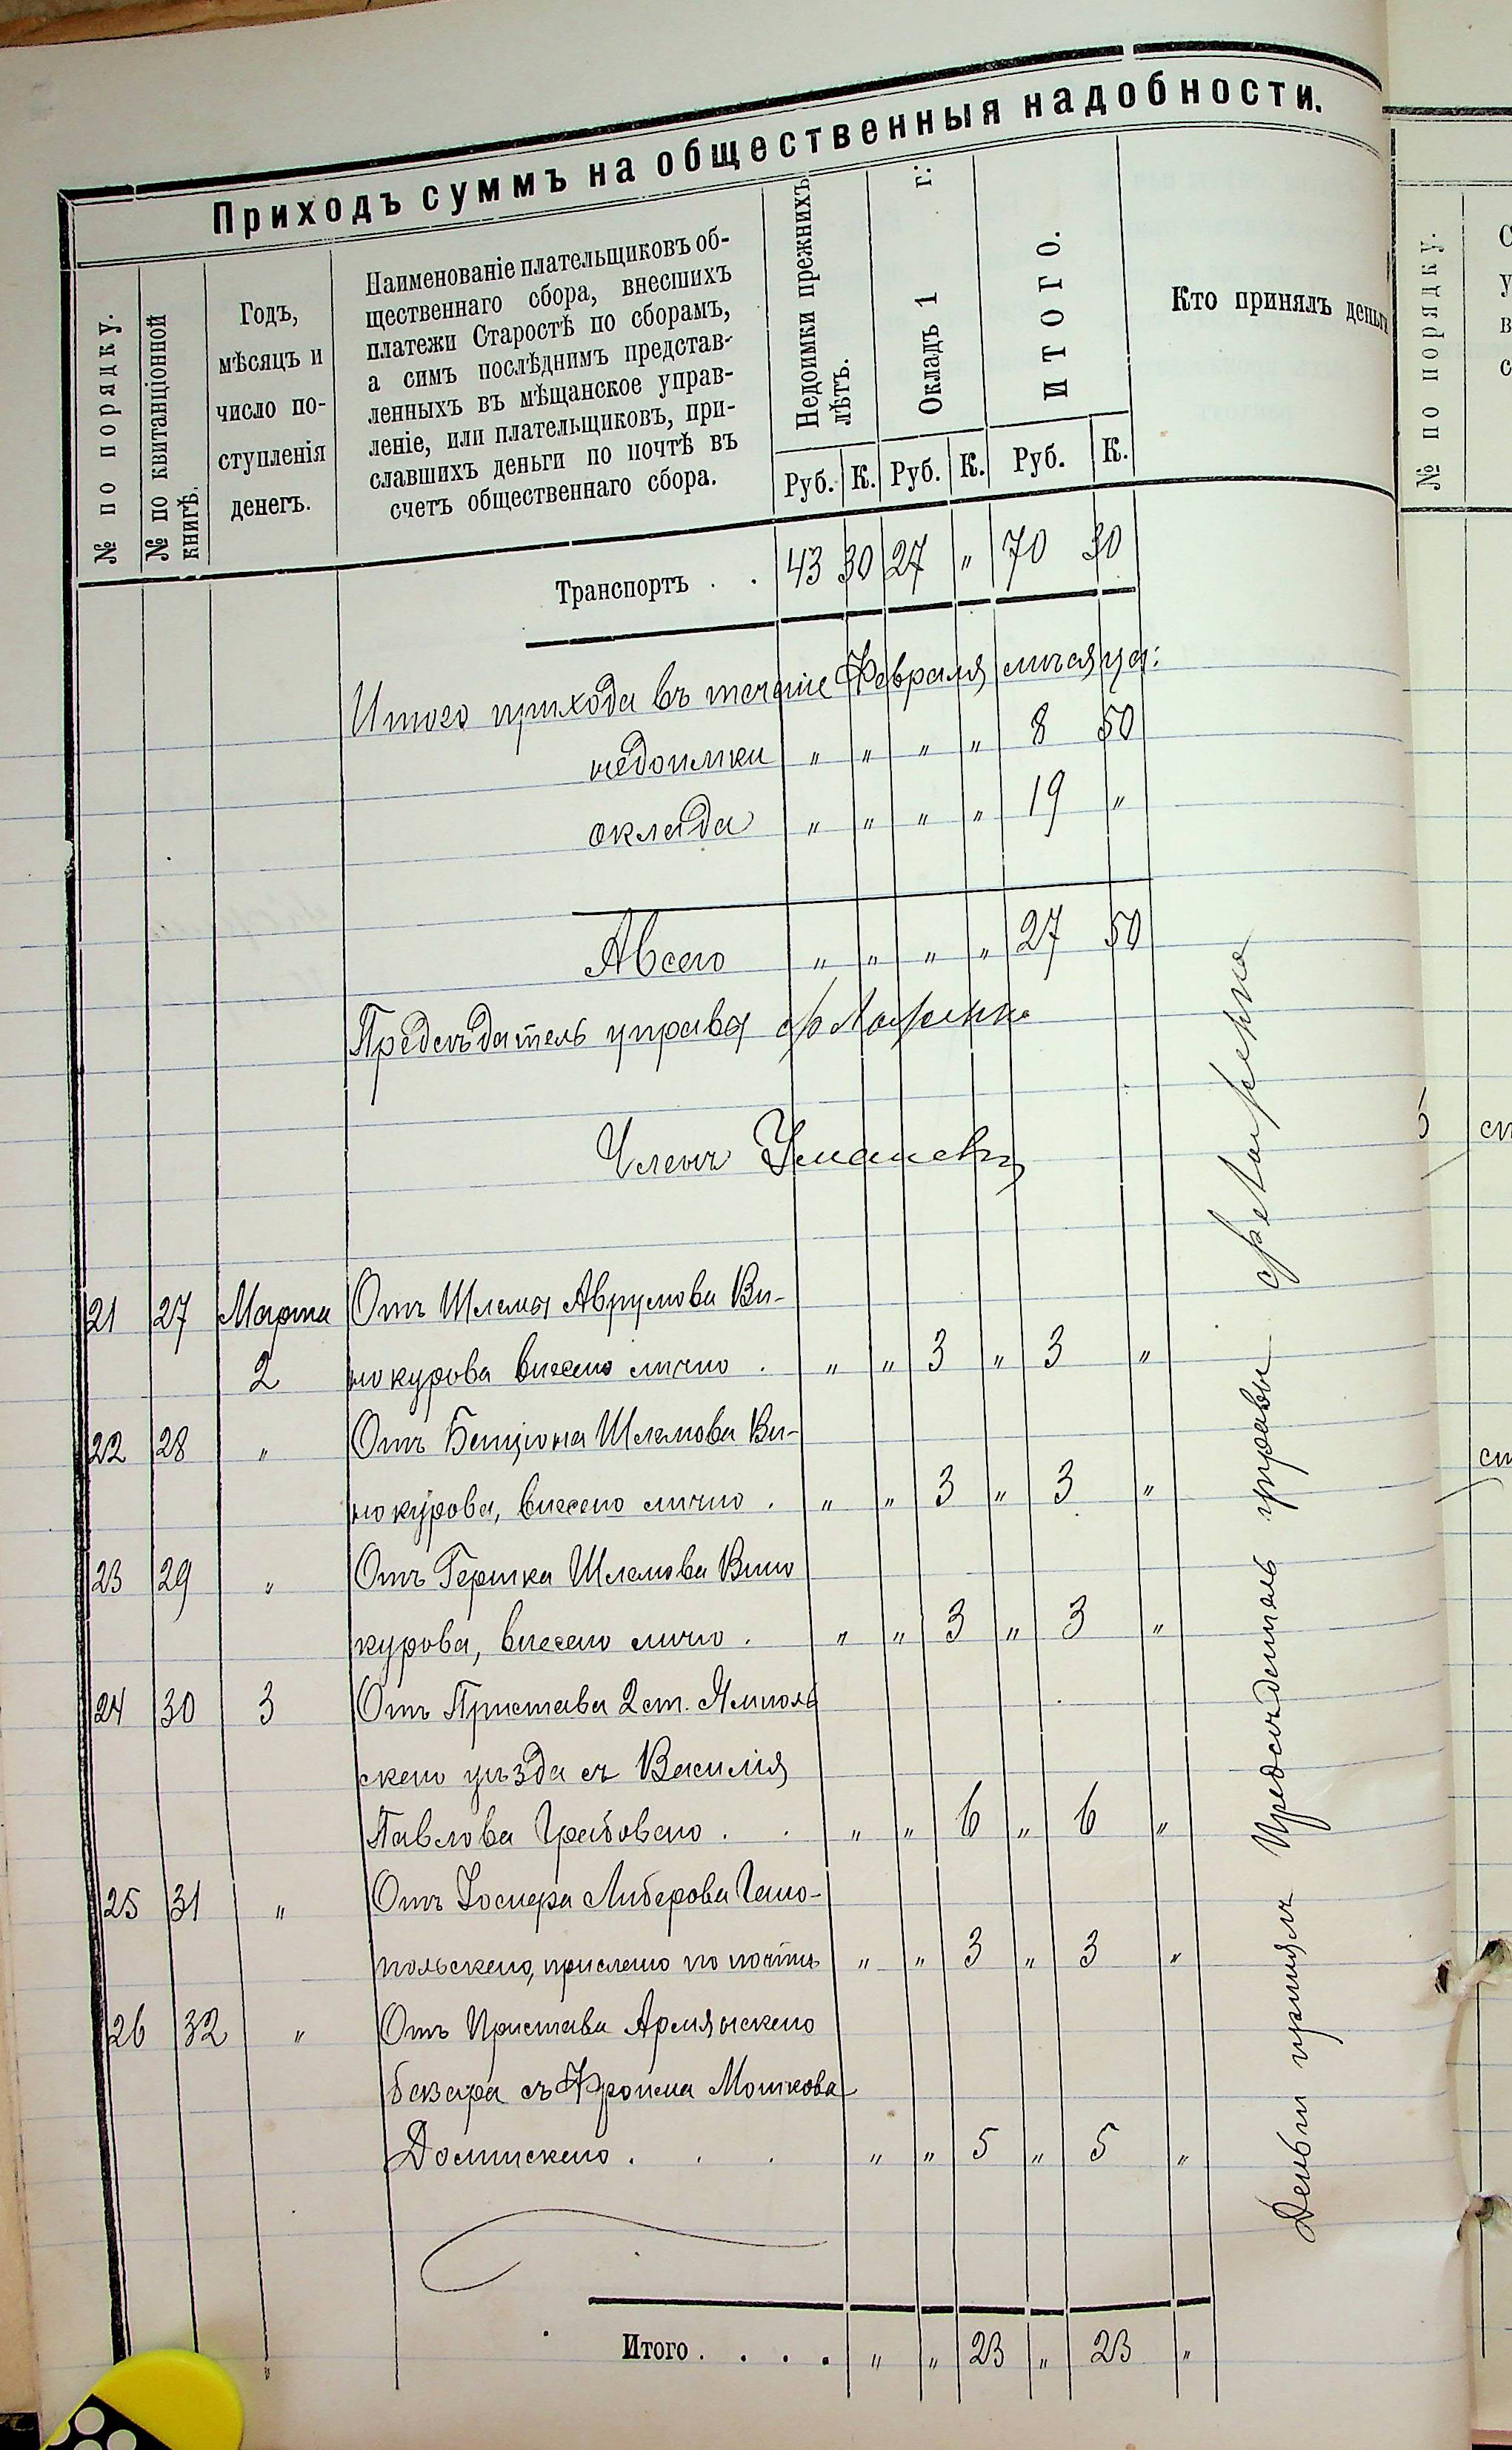 Приходъ суммъ на общественныя надобности.
№ по порядку.
№ по квитанціонной
книгѣ.
Годъ,
мѣсяцъ и
число по-
ступленія
денегъ.
Наименованіе плательщиковъ об-
щественнаго сбора, внесшихъ
платежи Старостѣ по сборамъ,
а симъ послѣднимъ представ-
ленныхъ въ мѣщанское управ-
леніе, или плательщиковъ, при-
славшихъ деньги по почтѣ въ
счетъ общественнаго сбора.
Недоимки прежнихъ
лѣтъ.
Окладъ 1 г.
ИТОГО.
Кто принялъ деньги
Руб. К. Руб. К. Руб. К.
Транспортъ . . 43 30 27 „ 70 30
Итого прихода въ теченіе Февраля мѣсяца:
недоимки „ „ „ „ 8 50
оклада „ „ „ „ 19 „
А всего „ „ „ „ 27 50
Предсѣдатель управы
Членъ
21 27 Марта Отъ Шлемы Аврумова Ви-
2 нокурова внесено лично . „ „ 3 „ 3 „
22 28 „ Отъ Бенціона Шлемова Ви-
нокурова, внесено лично . „ „ 3 „ 3 „
23 29 „ Отъ Гершка Шлемова Вино
курова, внесено лично . „ „ 3 „ 3 „
24 30 3 Отъ Пристава 2 ст. Ямполь
скаго уѣзда съ Василія
Павлова Грабоваго . . „ „ 6 „ 6 „
25 31 „ Отъ Іосифа Либерова
польскаго, прислано по почтѣ „ „ 3 „ 3 „
26 32 „ Отъ Пристава Армянскаго
базара съ Фроима Мошкова
Долинскаго . . . „ „ 5 „ 5 „
Итого . . . . „ „ 23 „ 23 „
Деньги принялъ Предсѣдатель управы
№ по порядку.